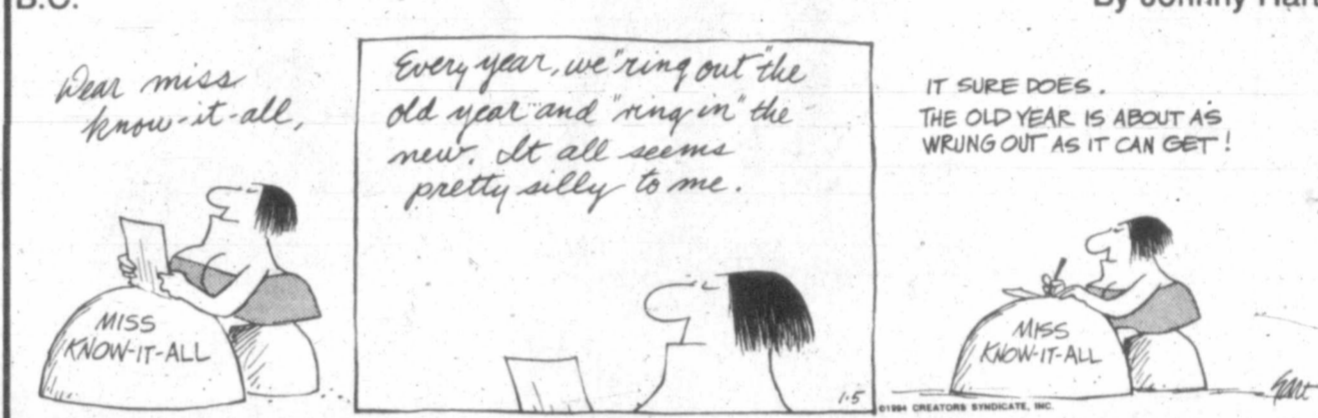 B.C.
By Johnny Hart
Dear miss
know-it-all,
MISS
KNOW-IT-ALL
Every year, we "ring out" the
old year and "ring in" the
new. It all seems
pretty silly to me.
1-5
IT SURE DOES.
THE OLD YEAR IS ABOUT AS
WRUNG OUT AS IT CAN GET!
MISS
KNOW-IT-ALL
©1994 CREATORS SYNDICATE, INC.
Hart